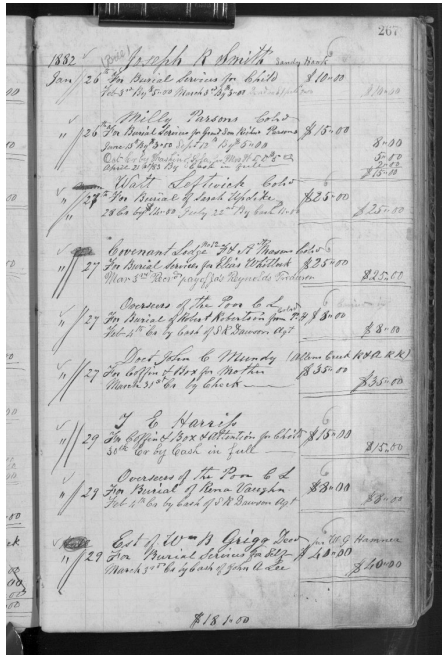 267
1882 Joseph R Smith Sandy Hook
Jan 26th For Burial Services for Child $10-00
Feb 3rd By $5-00 March 3rd By $5-00
Milly Parsons Cold
" 26th For Burial Services for Grand Son Richd Parsons $15-00
June 15 By $3-50 Sept 12 By $5-00 8-00
5-00
April 21st 1883 By Check in full 2-00
$15-00
Watt Leftwich Cold
" 27th For Burial of Sarah Updike $25-00
28 Co By $14-00 July 25th By Cash 11-00 $25-00
Covenant Lodge No 12 F & A Masons Cold
" 27 For Burial Services for Elias Whitlock $25-00
Mar 3rd Recd pay of Jas Reynolds $25-00
Overseers of the Poor C L
" 27 For Burial of Robert Robertson Cold from $8-00
Feb 4th Cr by Cash of S R Dawson Agt $8-00
Doct John C Mundy (Allens Creek R & A R R)
" 27 For Coffin & Box for Mother $35-00
March 31st Cr by Check $35-00
T E Harriss
" 29 For Coffin & Box & Attention for Child $15-00
30th Cr by Cash in full $15-00
Overseers of the Poor C L
" 29 For Burial of Rena Vaughn $8-00
Feb 4th Cr by Cash of S R Dawson Agt $8-00
Est of Wm B Grigg Decd W. G. Hamner
" 29 For Burial Services for Self $40-00
March 30th Cr by Cash of John A Lee $40-00
$181-00